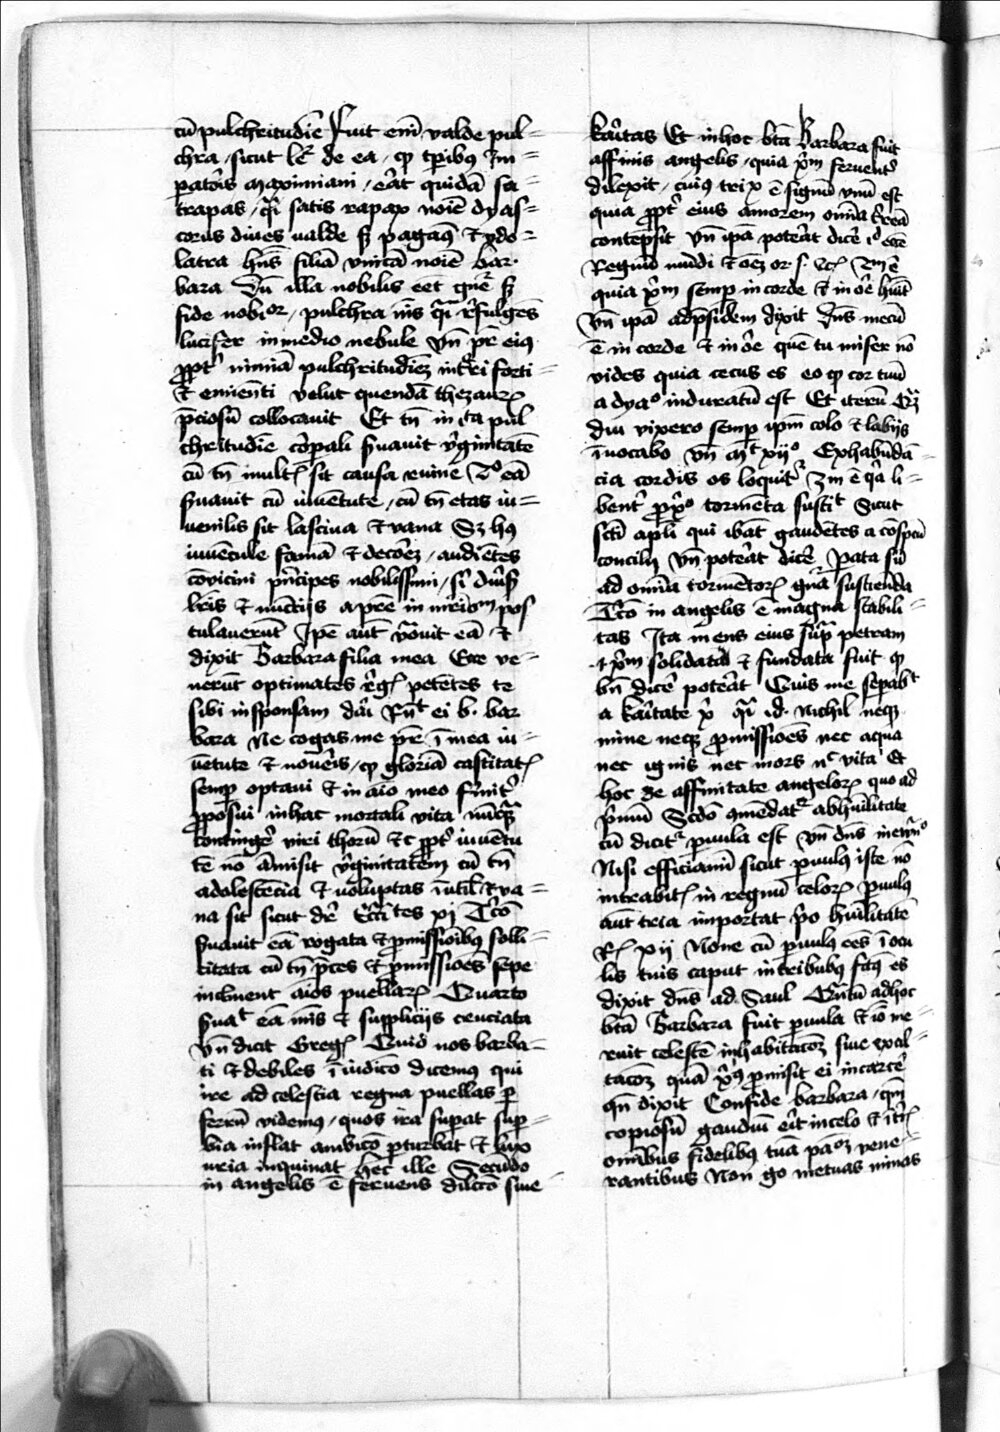 cū pulchritudīe Fuit eīm valde pul-
chra / sicut lēr de ea / qꝫ tp̄ribꝰ Im-
patoris maximiani / erat quidā sa-
trapas / qͥ satis rapax noīe dyas-
corus diues valde sꝫ paganꝰ et ydo-
latra hn̄s filiā vnicā noīe Bar-
bara Dū illa nobilis eēt gn̄e sꝫ
fide nobiꝉior / pulchra nīs qͣsi refulgēs
lucifer in medio nebule Vn̄ pr̄ eiꝰ
ꝓpt̄ nimiā pulchritudīez in turri forti
et eminēti velut quendā thezaurū
p̄ciosū collocauit Et tn̄ in tā pul
chritudīe corpali ẜuauit v̓ginitatē
cū tn̄ multis sit causa ruine Do eā
ẜuauit cū iuuētute / cū tn̄ etas iu-
uenilis sit lasciua et vana Sꝫ hꝰ
iuuēcule famā et decorez / audiētes
cōuicini pn̄cipes nobilissimi / sī diu̓sꝫ
lrīs et nūccijs a pr̄e in mr̄ioꝫ pos
tulauerūt Ip̄e aūt vocauit eā et
dixit Barbara filia mea Ecce ve-
nerūt optimates regꝭ petētes te
sibi in sponsam dari Rn̄t ei b. bar
bara Ne cogas me pr̄ ī mea iu-
uētute et noueris / qꝫ gloriā castitatꝭ
semꝑ optaui et in aīo meo firmit̓
ꝓposui in hac mortali vita nūcqͣꝫ
contingē viri thorū etc ꝓpt̄ iuuētu
tē nō amisit v̓ginitatem cū tn̄
adolescēcia et voluptas inutil et va-
na sit sicut dr̄ Ecc̄i tes xj Tercō
ẜuauit eā rogata et ꝓmissioībꝰ solli-
citata cū tn̄ p̄ces et ꝓmissiōes sepe
inclinent aīos puellarꝫ Quarto
ẜuat eā minis et supplicijs cruciata
Vn̄ dicit Gregꝭ Quid nos barba-
ti et debiles ī iudicō dicemꝰ qui
ire ad celestia regna puellas ꝑ
ferrū videmꝰ / quos ira suꝑat suꝑ-
bia inflat ambicō ꝑturbat et lux
uria inquinat Hec ille Secūdo
in angelis ē feruens dilectō siue
karitas Et in hoc bta Barbara fuit
affinis angelis / quia xpm̄ feruent̓
dilexit / cuiꝰ trix ē signū vnū est
quia ꝓpt̄ eius amorem omīa t̓rea
contepsit vn̄ ipa poterat dicē
Regnū mūdi et oēz or.
quia xpm̄ semꝑ in corde et in ore huit
Vn̄ ipa ad p̄sidem dixit Dn̄s mecū
ē in corde et in ore quē tu miser nō
vides quia cecus es eo qꝫ cor tuū
a dyaꝉo induratū est Et iterū
diu vixero semꝑ ipm̄ colo et labijs
inuocabo vn̄ mt xijo Ex habūdā-
cia cordis os loquit̓ ē qa li-
bent̓ ꝓ xpo tormēta sustit Sicut
scī apli qui ibāt gaudētes a cōspcū
concilij Vn̄ poterat dicē Pata sū
ad omīa tormētorꝫ gn̄a sustienda
Tercō in angelis ē magna stabili-
tas Ita mens eius supͣ petram
.i. xpm̄ solidata et fundata fuit qꝫ
bn̄ dicē poterat Quis me separabit
a karitate xp̄i qͣsi id. Nichil neqꝫ
mine neqꝫ ꝓmissiōes nec aqua
nec ignis nec mors nc vita Et
hoc de affinitate angelorꝫ quo ad
primū Scdō commēdatr ab hūilitate
cū dicitr puula est Vn̄ dn̄s in ewāº
Nisi efficiamī sicut puulꝰ iste nō
intrabitꝭ in regnū celorꝫ puulꝰ
aūt tria importat pō hūilitatē
Rꝭ xij None cū puulꝰ eēs ī ocu
lis tuis caput in tribubꝰ fcūs es
dixit dn̄s ad Saul Quātū ad hoc
bta Barbara fuit puula et iō me-
ruit celestē inhabitacōez siue exal-
tacōz quā xp̄s ꝓmisit ei in carcē
qn̄ dixit Confide barbara / qm̄
copiosū gaudiū erit in celo et in
omībus fidelibꝰ tuā paōz vene-
rantibus Non go metuas minas